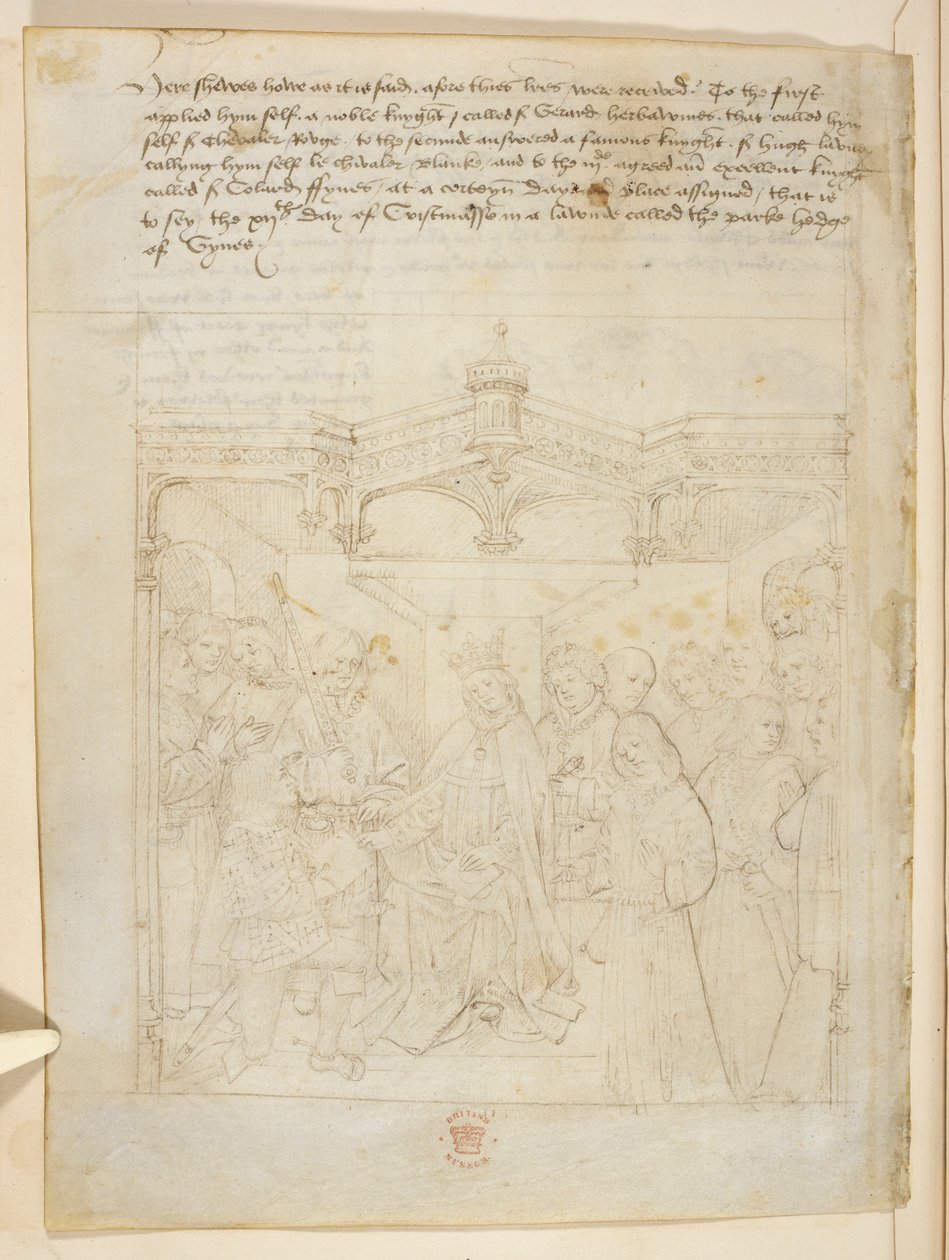 Here shewes howe as it is said . afore thies lres were received . To the first
applied hym self . a noble knyght / called S Gerard herbawmes . that called hym
self S Chevaler Rouge . to the secunde answered a famous knyght . S hugh
callyng hym self le chivaler Blanke / and to the iij de agreed an excellent knyght
called S Colard ffynes / at a certeyn day place assigned / that is
to sey . the xij th day of Cristmasse in a lawnde called the parke hedge
of Gynes .
BRITISH
MUSEUM